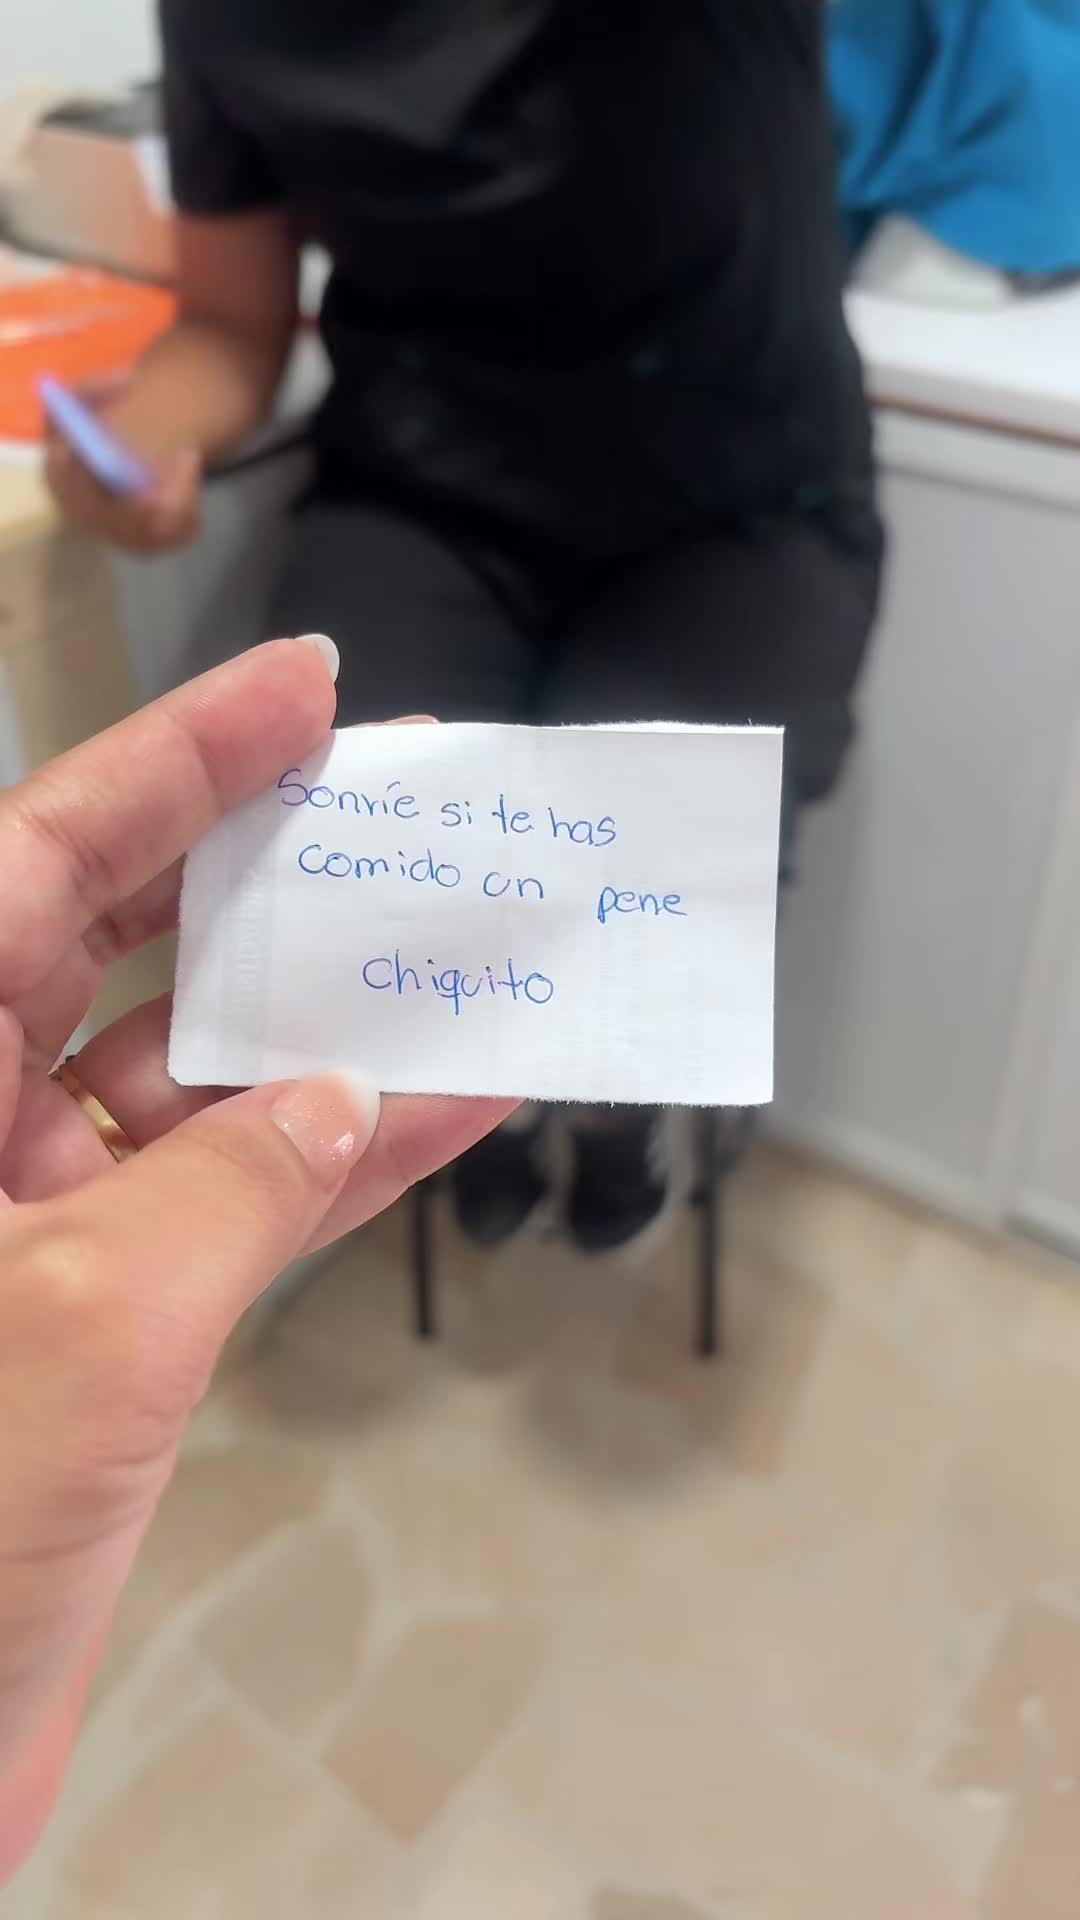 Sonríe si te has
comido un pene
chiquito